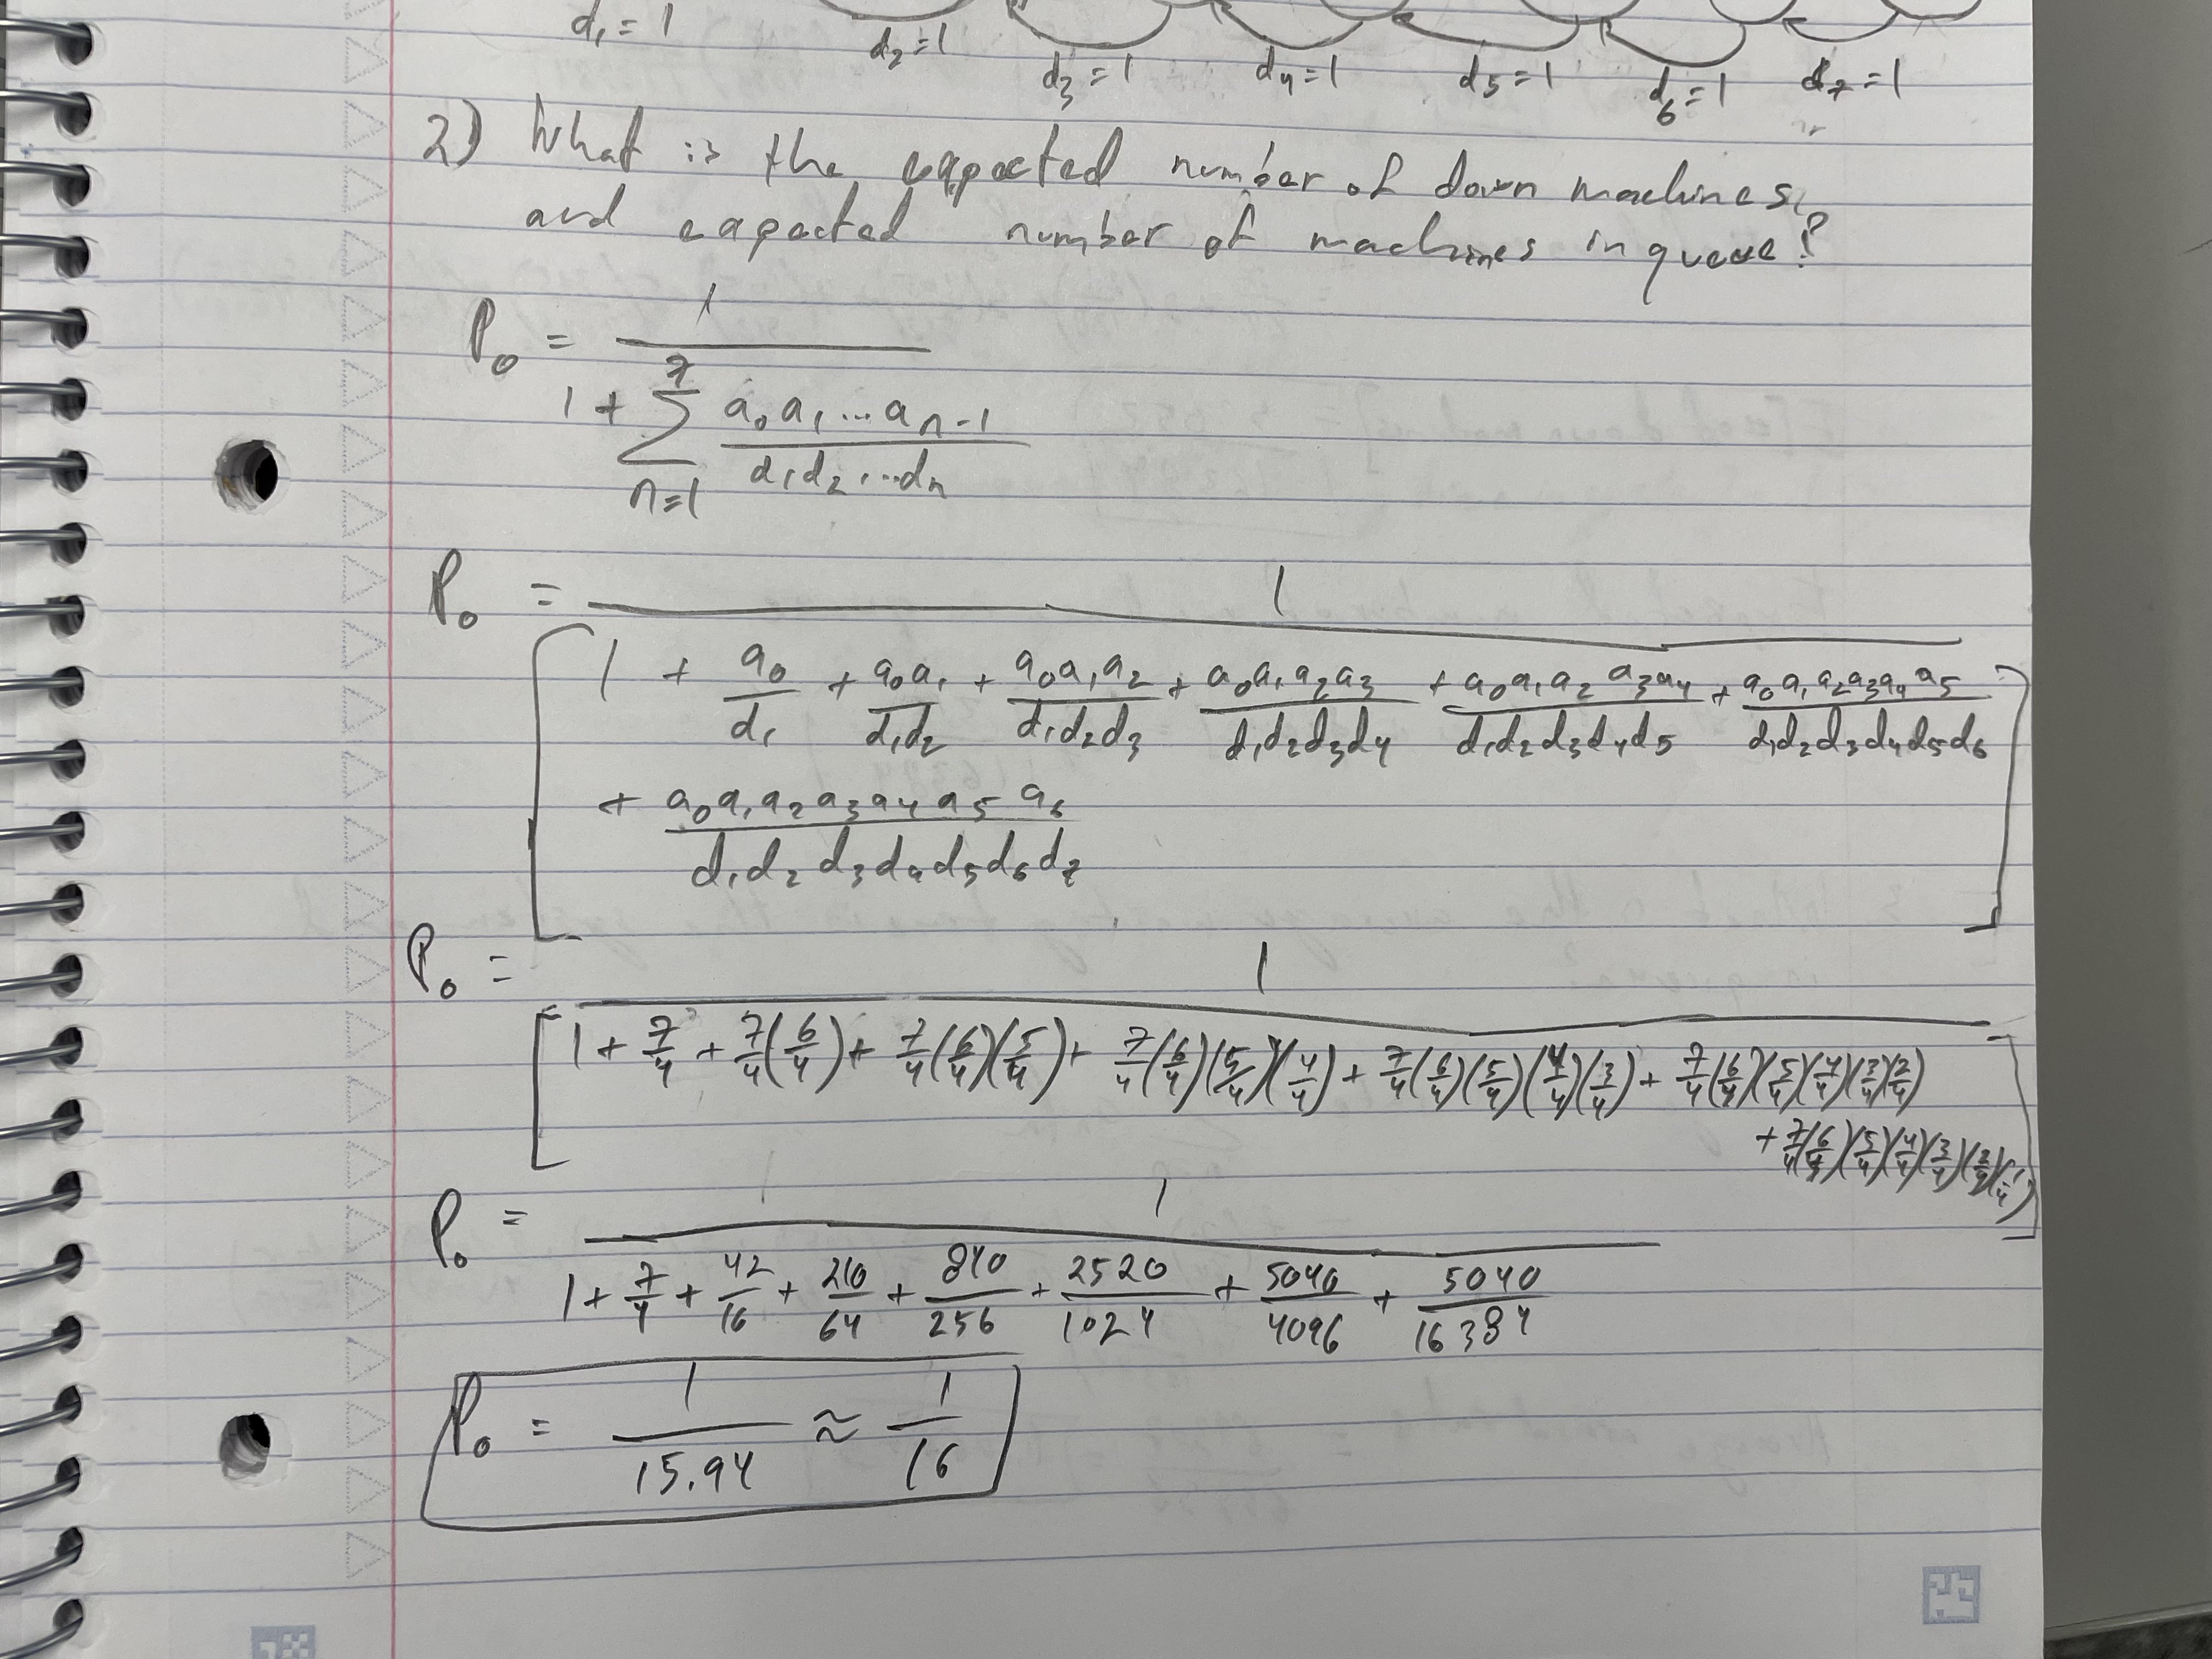 d₁=1 d₂=1 d₃=1 d₄=1 d₅=1 d₆=1 d₇=1
2) What is the expected number of down machines,
and expected number of machines in queue?
P₀ = 1 / (1 + Σ_{n=1}^{7} a₀a₁...aₙ₋₁ / d₁d₂...dₙ)
P₀ = 1 / [1 + a₀/d₁ + a₀a₁/d₁d₂ + a₀a₁a₂/d₁d₂d₃ + a₀a₁a₂a₃/d₁d₂d₃d₄ + a₀a₁a₂a₃a₄/d₁d₂d₃d₄d₅ + a₀a₁a₂a₃a₄a₅/d₁d₂d₃d₄d₅d₆
+ a₀a₁a₂a₃a₄a₅a₆/d₁d₂d₃d₄d₅d₆d₇]
P₀ = 1 / [1 + 7/4 + 7/4(6/4) + 7/4(6/4)(5/4) + 7/4(6/4)(5/4)(4/4) + 7/4(6/4)(5/4)(4/4)(3/4) + 7/4(6/4)(5/4)(4/4)(3/4)(2/4)
+ 7/4(6/4)(5/4)(4/4)(3/4)(2/4)(1/4)]
P₀ = 1 / (1 + 7/4 + 42/16 + 210/64 + 840/256 + 2520/1024 + 5040/4096 + 5040/16384)
P₀ = 1/15.94 ≈ 1/16